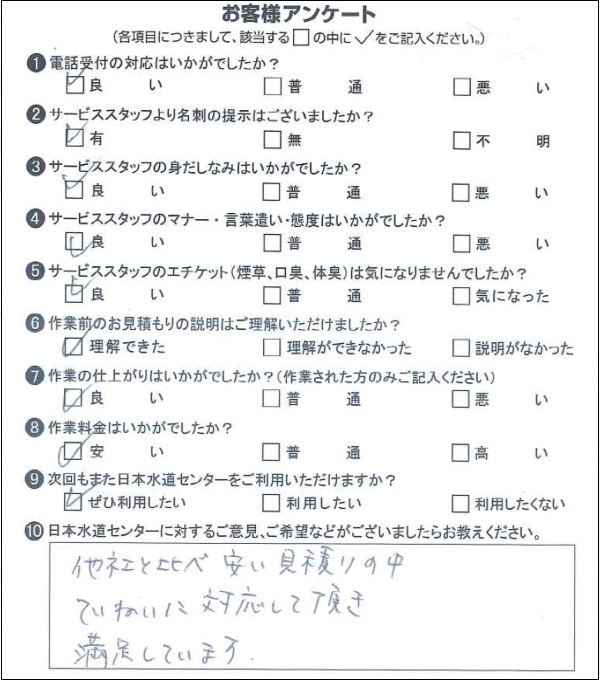 お客様アンケート
(各項目につきまして、該当する□の中に✓をご記入ください。)
❶電話受付の対応はいかがでしたか?
☑良い □普通 □悪い
❷サービススタッフより名刺の提示はございましたか?
☑有 □無 □不明
❸サービススタッフの身だしなみはいかがでしたか?
☑良い □普通 □悪い
❹サービススタッフのマナー・言葉遣い・態度はいかがでしたか?
☑良い □普通 □悪い
❺サービススタッフのエチケット(煙草、口臭、体臭)は気になりませんでしたか?
☑良い □普通 □気になった
❻作業前のお見積もりの説明はご理解いただけましたか?
☑理解できた □理解ができなかった □説明がなかった
❼作業の仕上がりはいかがでしたか?(作業された方のみご記入ください)
☑良い □普通 □悪い
❽作業料金はいかがでしたか?
☑安い □普通 □高い
❾次回もまた日本水道センターをご利用いただけますか?
☑ぜひ利用したい □利用したい □利用したくない
❿日本水道センターに対するご意見、ご希望などがございましたらお教えください。
他社と比べ 安い見積りの中
ていねいに 対応して頂き
満足しています.